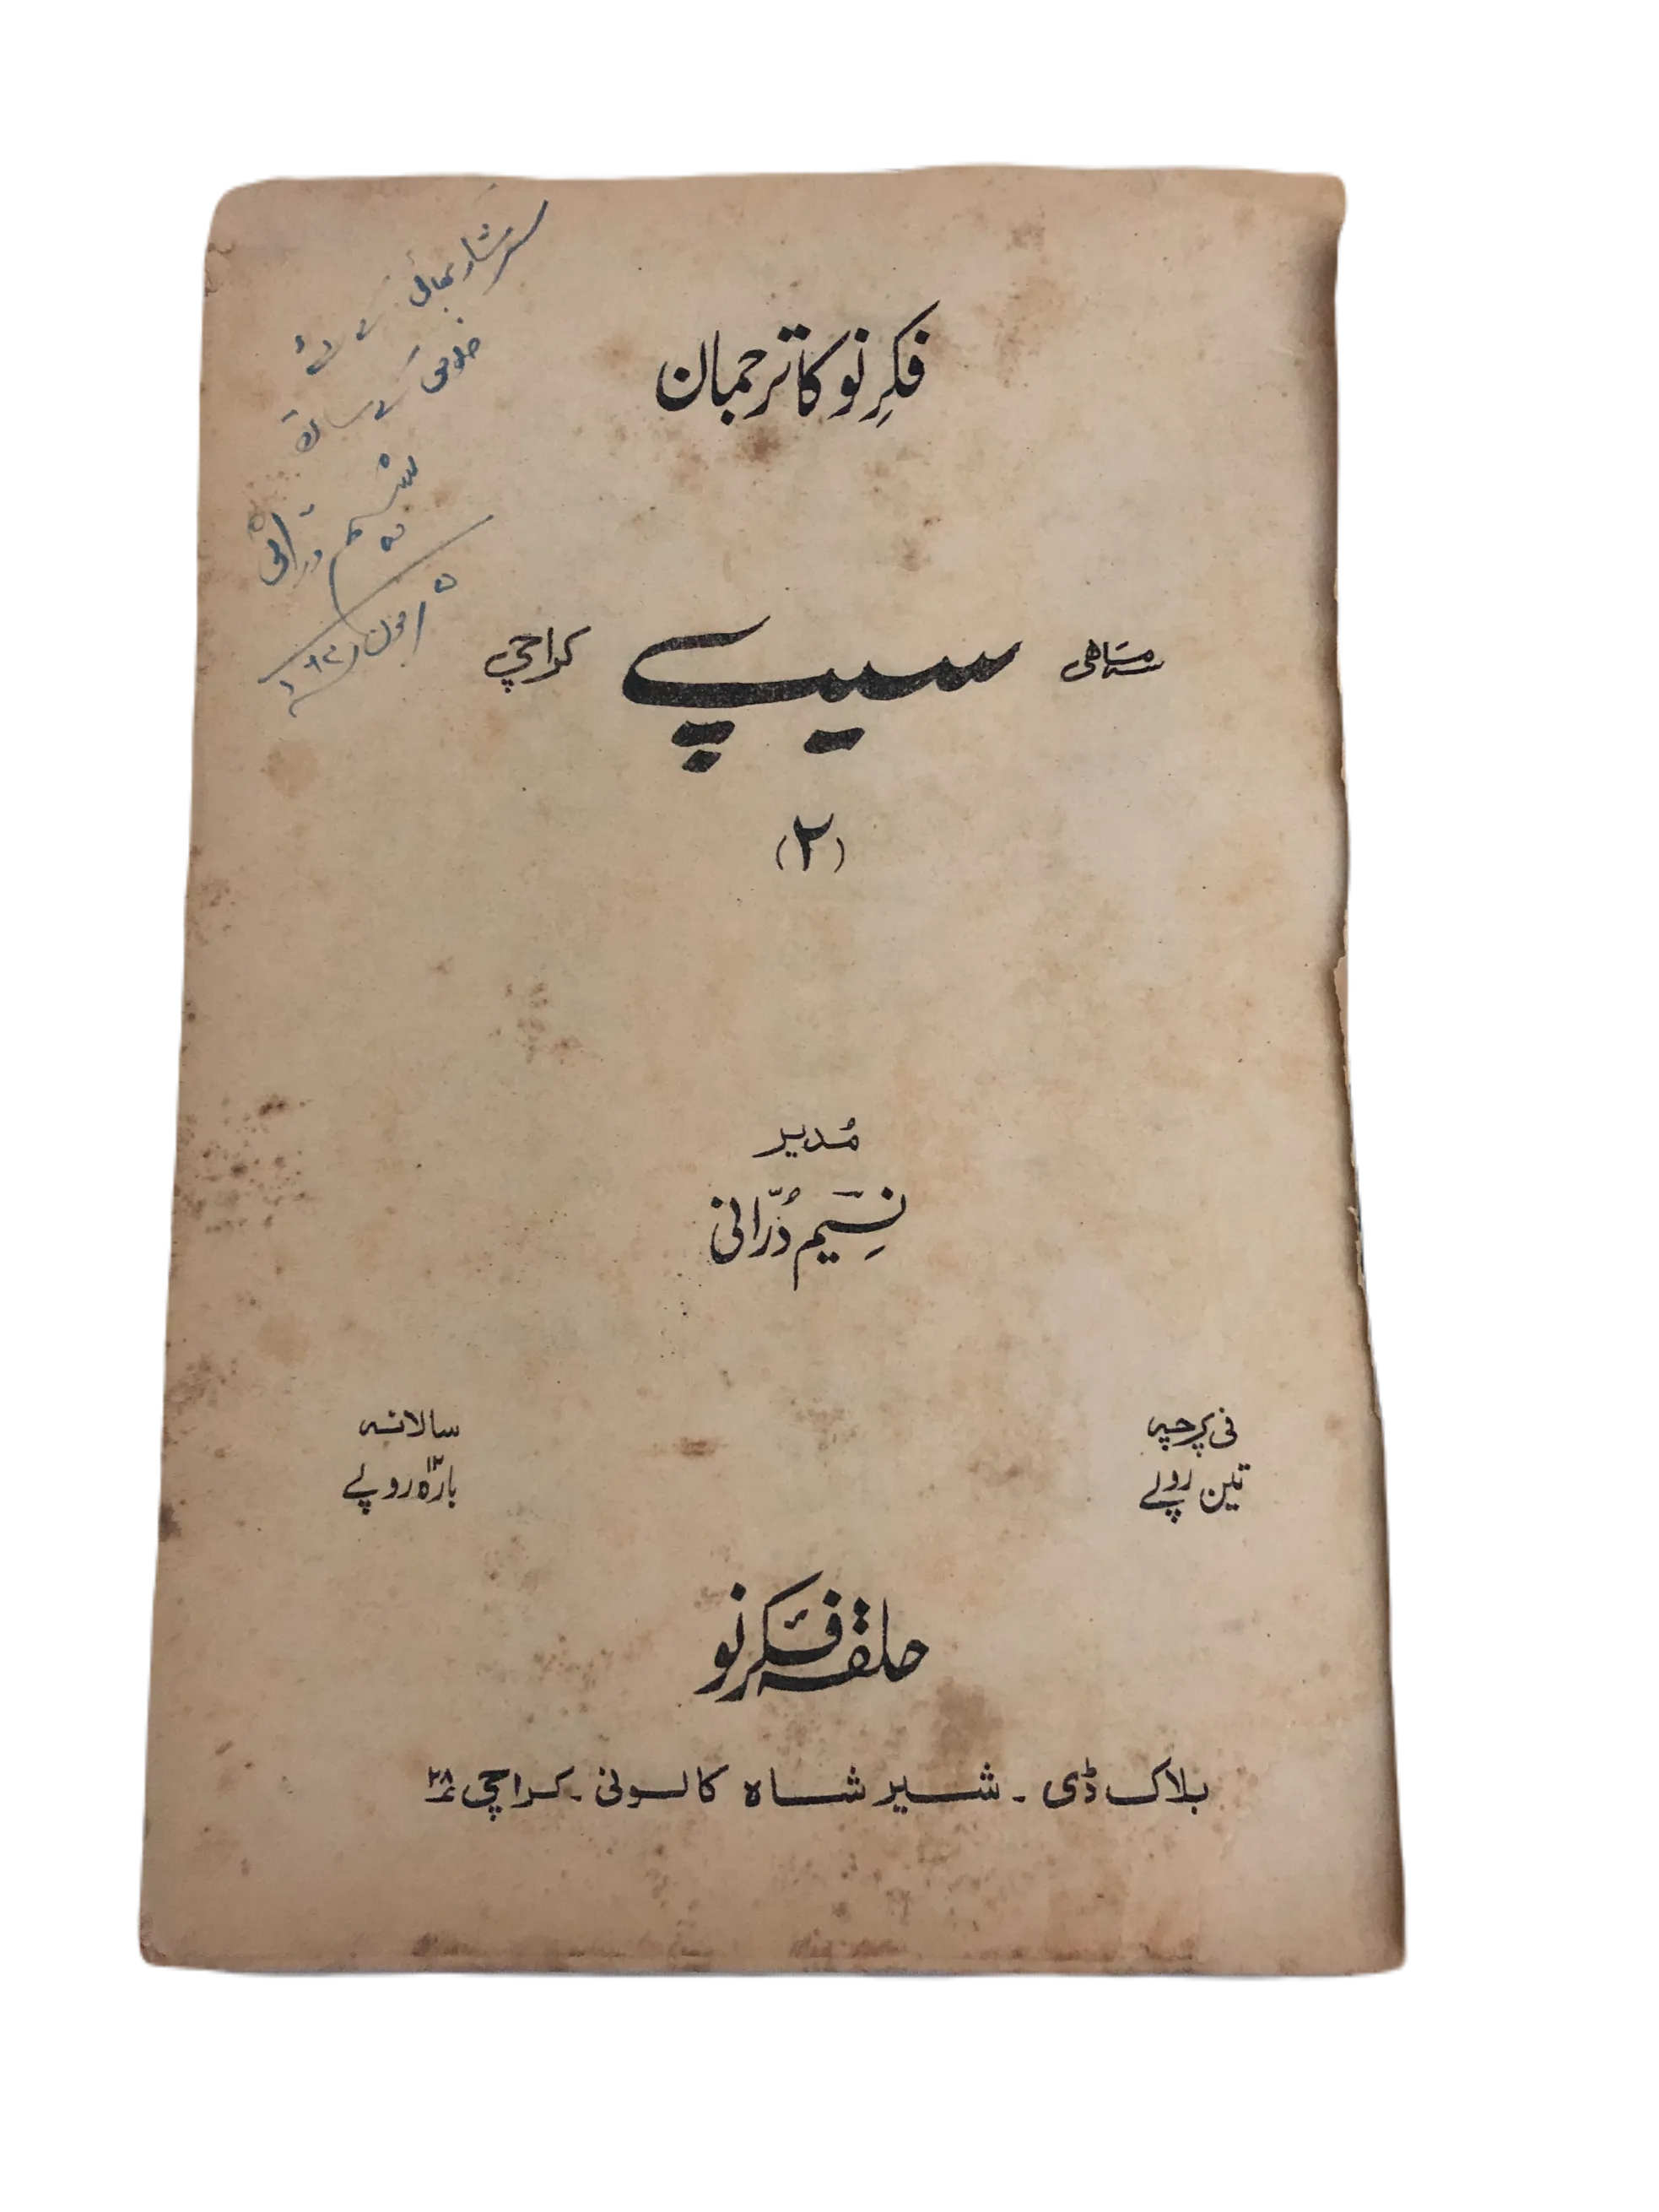 سرشار بھائی کے لئے
خلوص کے ساتھ
نسیم درانی
۵ جون
فکرِ نو کا ترجمان
سہ ماهی سیپ کراچی
(۲)
مُدیر
نسِیم دُرّانی
فی پرچہ
تین روپے
سالانہ
بارہ۱۲ روپے
حلقہ فکرِ نو
بلاک ڈی ۔ شیر شاہ کالونی ۔ کراچی ۲۸